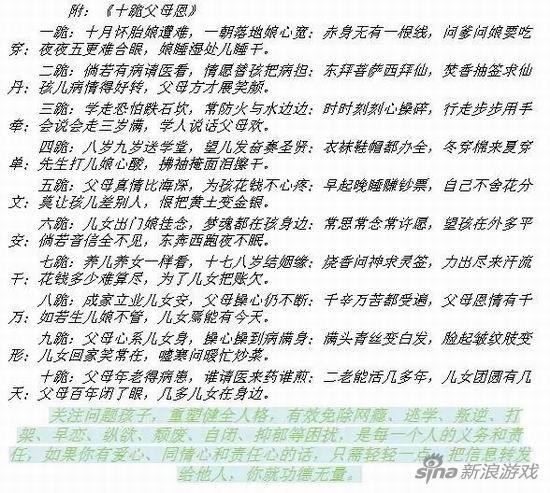 附：《十跪父母恩》
一跪：十月怀胎娘遭难，一朝落地娘心宽；赤身无有一根线，问爹问娘要吃
穿；夜夜五更难合眼，娘睡湿处儿睡干。
二跪：倘若有病请医看，情愿替孩把病担；东拜菩萨西拜仙，焚香抽签求仙
丹；孩儿病情得好转，父母方才展笑颜。
三跪：学走恐怕跌石坎，常防火与水边边；时时刻刻心操碎，行走步步用手
牵；会说会走三岁满，学人说话父母欢。
四跪：八岁九岁送学堂，望儿发奋攀圣贤；衣袜鞋帽都办全，冬穿棉来夏穿
单；先生打儿娘心酸，拂袖掩面泪擦干。
五跪：父母真情比海深，为孩花钱不心疼；早起晚睡赚钞票，自己不舍花分
文；莫让孩儿差别人，恨把黄土变金银。
六跪：儿女出门娘挂念，梦魂都在孩身边；常思常念常许愿，望孩在外多平
安；倘若音信全不见，东奔西跑夜不眠。
七跪：养儿养女一样看，十七八岁结姻缘；烧香问神求灵签，力出尽来汗流
干；花钱多少难算尽，为了儿女把账欠。
八跪：成家立业儿女安，父母操心仍不断；千辛万苦都受遍，父母恩情有千
万；如若生儿娘不管，儿女焉能有今天。
九跪：父母心系儿女身，操心操到病满身；满头青丝变白发，脸起皱纹肢变
形；儿女回家笑常在，嘘寒问暖忙炒菜。
十跪：父母年老得病患，谁请医来药谁煎；二老能活几多年，儿女团圆有几
天；父母百年闭了眼，几多儿女在身边。
关注问题孩子，重塑健全人格，有效免除网瘾、逃学、叛逆、打
架、早恋、纵欲、颓废、自闭、抑郁等困扰，是每一个人的义务和责
任，如果你有爱心、同情心和责任心的话，只需轻轻一点，把信息转发
给他人，你就功德无量。
sina新浪游戏